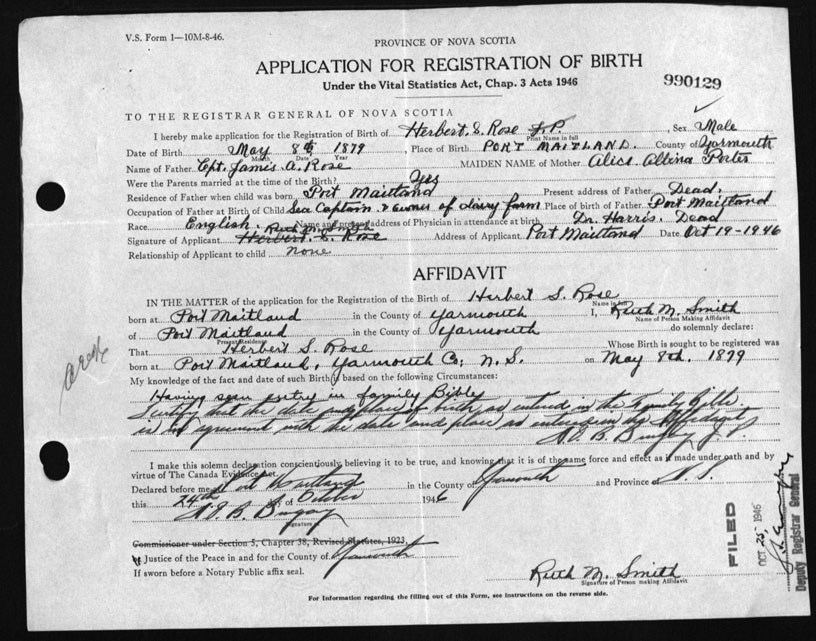 V.S. Form 1—10M-8-46.
PROVINCE OF NOVA SCOTIA
APPLICATION FOR REGISTRATION OF BIRTH
Under the Vital Statistics Act, Chap. 3 Acts 1946
990129
TO THE REGISTRAR GENERAL OF NOVA SCOTIA
I hereby make application for the Registration of Birth of Herbert S. Rose J.P. , Sex Male
Print Name in full
Date of Birth May 8th 1879 Place of Birth PORT MAITLAND. County of Yarmouth
Month Date Year
Name of Father Cpt. James A. Rose MAIDEN NAME of Mother Alice Albina Porter
Were the Parents married at time of the Birth? Yes
Residence of Father when child was born Port Maitland Present address of Father Dead.
Occupation of Father at Birth of Child Sea Captain & owner of dairy farm Place of birth of Father Port Maitland
Race English. Name and present address of Physician in attendance at birth Dr. Harris. Dead
Ruth M. Smith
Signature of Applicant Herbert S. Rose Address of Applicant Port Maitland Date Oct 19-1946
Relationship of Applicant to child none
AFFIDAVIT
IN THE MATTER of the application for the Registration of the Birth of Herbert S. Rose
Name in full
born at Port Maitland in the County of Yarmouth I, Ruth M. Smith
Name of Person Making Affidavit
of Port Maitland in the County of Yarmouth do solemnly declare:
Present Residence
That Herbert S. Rose Whose Birth is sought to be registered was
born at Port Maitland, Yarmouth Co, N. S. on May 8th, 1879
My knowledge of the fact and date of such Birth is based on the following Circumstances:
Having seen entry in family Bible
I certify that the date and place of birth as entered in the Family Bible
is in agreement with the date and place as entered in this Affidavit
J. P.
I make this solemn declaration conscientiously believing it to be true, and knowing that it is of the same force and effect as if made under oath and by
virtue of The Canada Evidence Act.
Declared before me Port Maitland in the County of Yarmouth and Province of N. S.
this 24th day of October 1946
Signature
Commissioner under Section 5, Chapter 38, Revised Statutes, 1923.
A Justice of the Peace in and for the County of Yarmouth
If sworn before a Notary Public affix seal.
Ruth M. Smith
Signature of Person making Affidavit
For Information regarding the filling out of this Form, see instructions on the reverse side.
FILED
OCT 25 1946
Deputy Registrar General